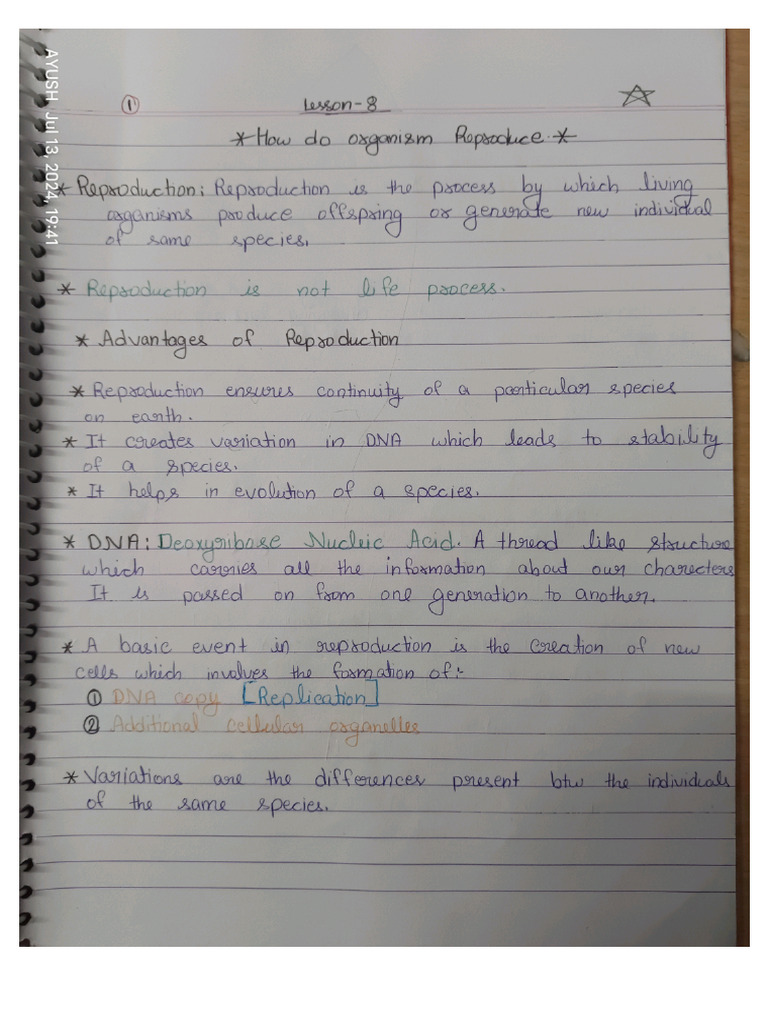 AYUSH Jul 13, 2024, 19:41
① Lesson-8
* How do organism Reproduce *
* Reproduction: Reproduction is the process by which living
organisms produce offspring or generate new individual
of same species.
* Reproduction is not life process.
* Advantages of Reproduction
* Reproduction ensures continuity of a particular species
on earth.
* It creates variation in DNA which leads to stability
of a species.
* It helps in evolution of a species.
* DNA: Deoxyribose Nucleic Acid. A thread like structure
which carries all the information about our charecters
It is passed on from one generation to another.
* A basic event in reproduction is the creation of new
cells which involves the formation of:-
① DNA copy [Replication]
② Additional cellular organelles
* Variations are the differences present btw the individuals
of the same species.